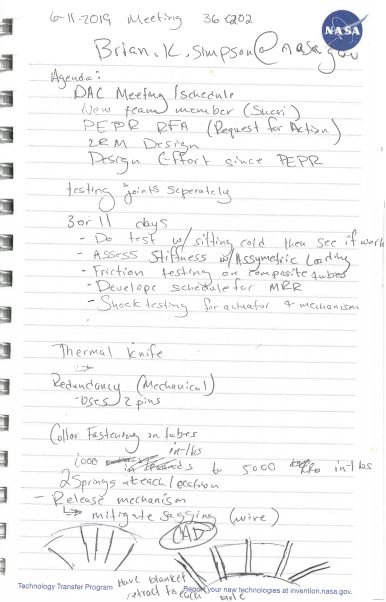 6-11-2019 Meeting 36-Q202
NASA
Brian.K.Simpson@nasa.gov
Agenda:
DAC Meeting/schedule
New team member (Sueri)
PEPR RFA (Request for Action)
2RM Design
Design Effort since PEPR
testing joints seperately
3 or 11 days
- Do test w/ sitting cold then see if work
- Assess Stiffness w/ Assymetric Loading
- Friction testing on composite tubes
- Develope schedule for MRR
- Shock testing for actuator & mechanism
Thermal Knife
Redundancy (Mechanical)
- Uses 2 pins
Collor Fastening on tubes
1000 in-lbs to 5000 in-lbs
2 Springs at each location
- Release mechanism
↳ mitigate sagging (wire)
CAD
Technology Transfer Program
Have blanket
retract to each
Report your new technologies at invention.nasa.gov.